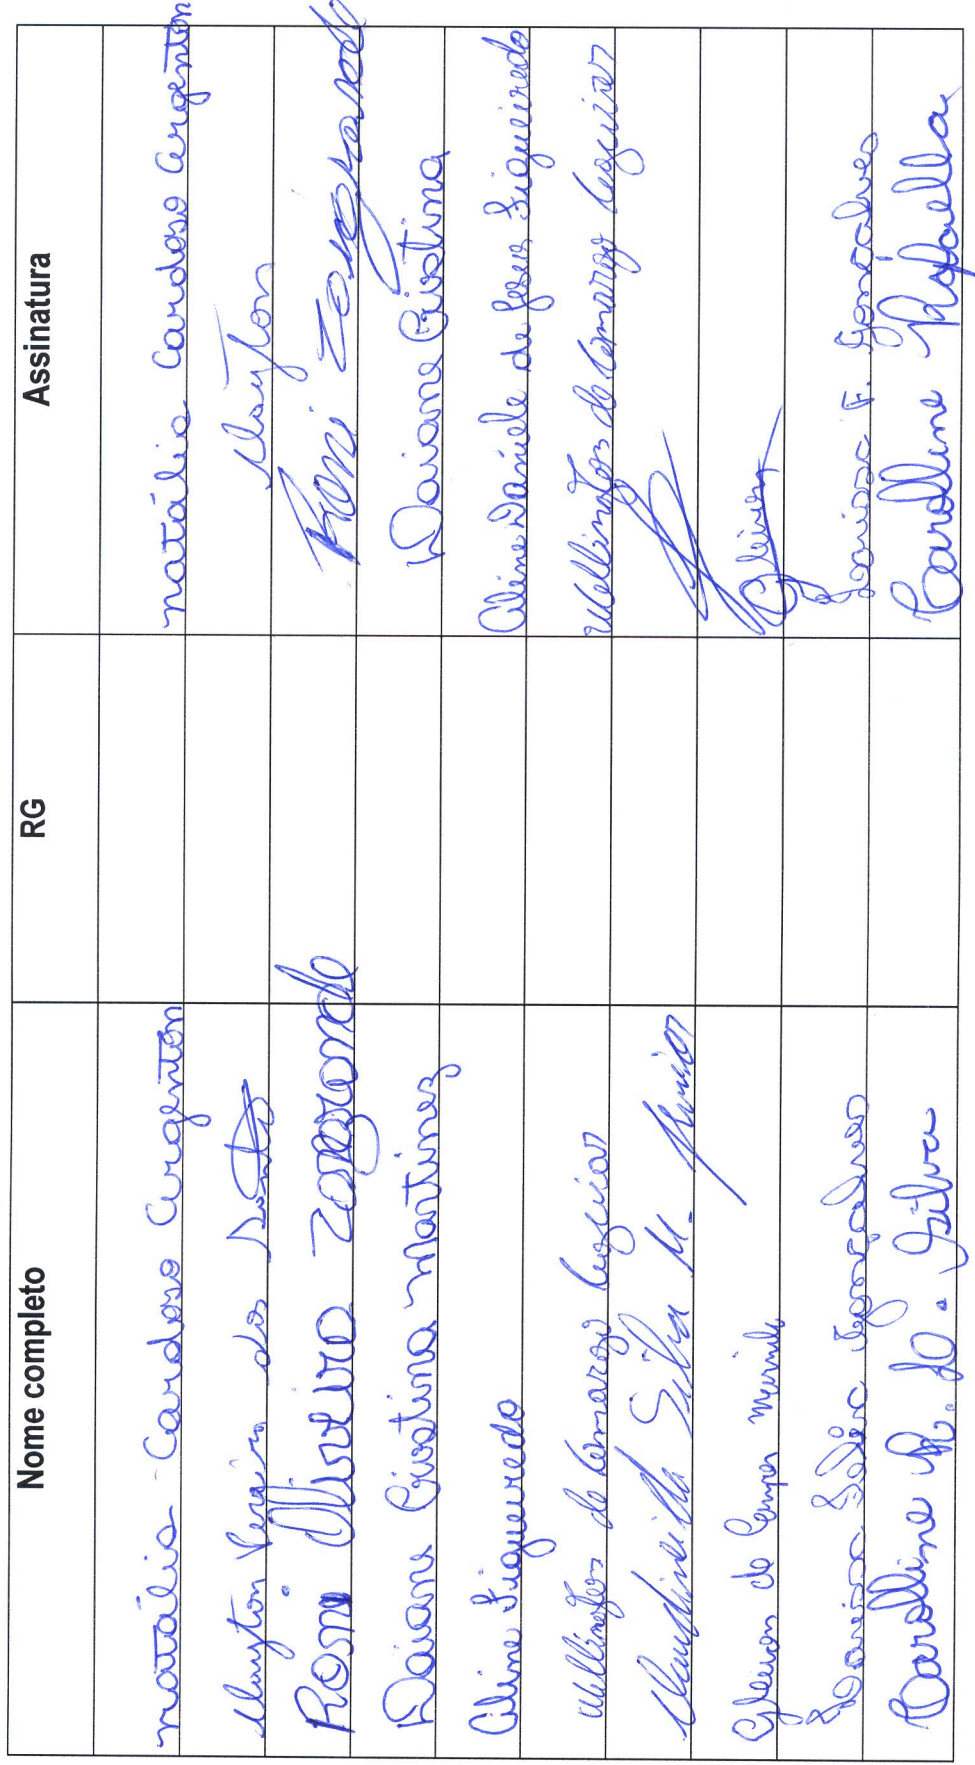 Nome completo RG Assinatura
Natália Cardoso Argenton Natália Cardoso Argenton
Clayton Pereira dos Santos Clayton
Roni Oliveira Zagrande Roni
Daiane Cristina Martinez Daiane Cristina
Aline Figueredo Aline Daniele de Jesus Figueiredo
Wellington de Camargo Wellington de Camargo
Silva M. Junior
Gleison de Campos Gleison
Gonçalves F. Gonçalves
Carolline R. D. Silva Carolline Rafaella